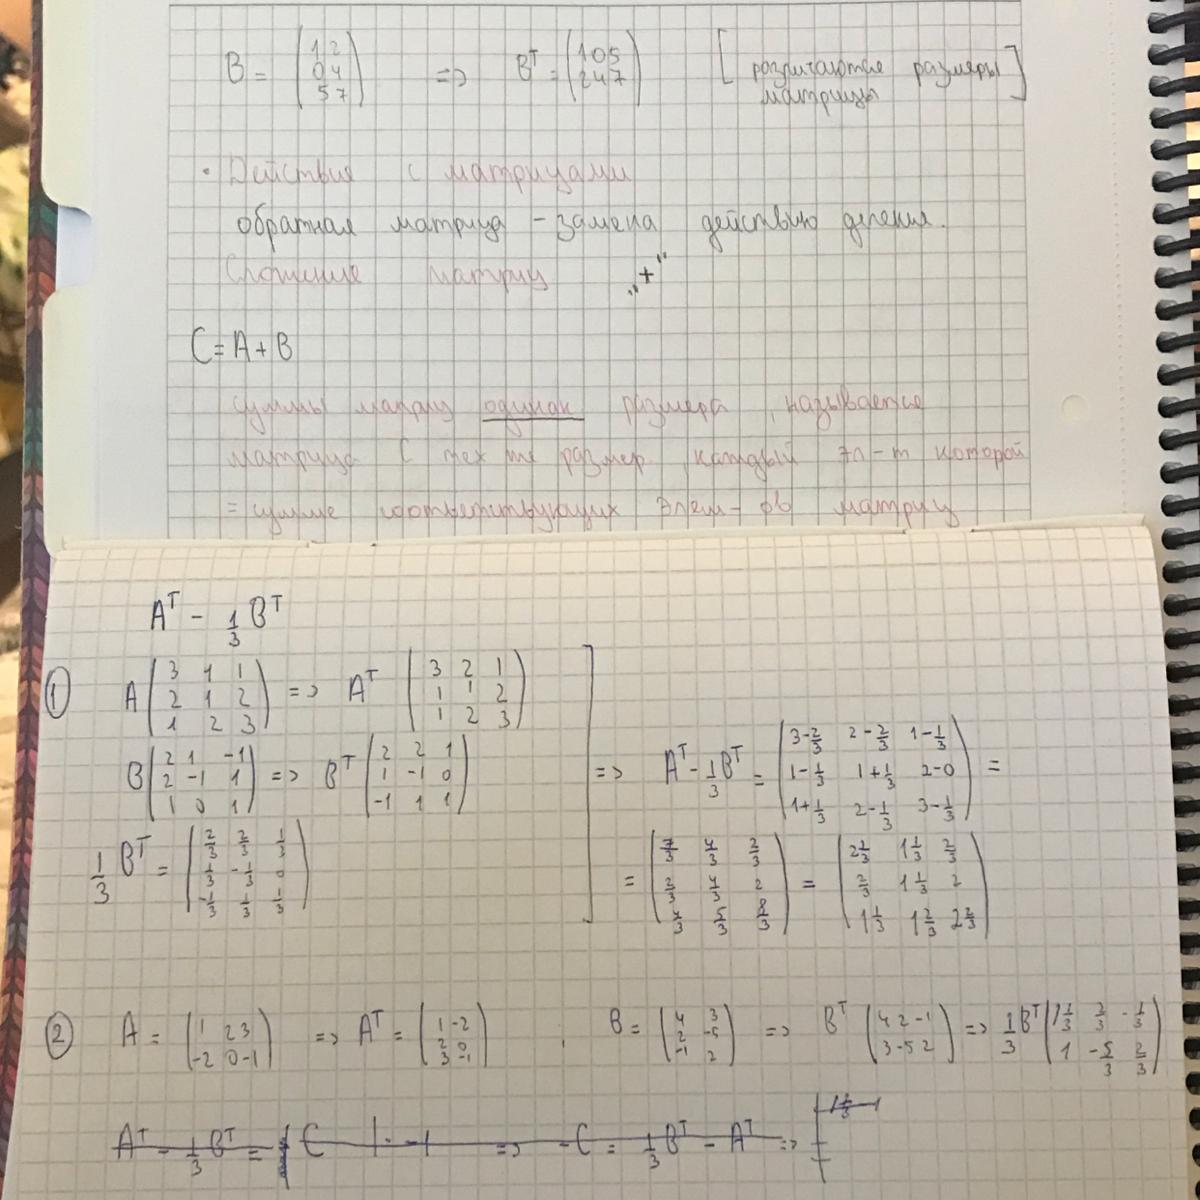 B = (1 2 / 0 4 / 5 7) => Bᵀ = (1 0 5 / 2 4 7) [различаются размеры матрицы]
• Действия с матрицами
обратная матрица - замена действию деления.
Сложение матриц „+"
C = A + B
суммы матриц одинак размера, называется
матрица С тех же размер, каждый эл-т которой
= сумме соответствующих элем-ов матриц
Aᵀ - 1/3 Bᵀ
① A (3 1 1 / 2 1 2 / 1 2 3) => Aᵀ (3 2 1 / 1 1 2 / 1 2 3)
B (2 1 -1 / 2 -1 1 / 1 0 1) => Bᵀ (2 2 1 / 1 -1 0 / -1 1 1)
1/3 Bᵀ = (2/3 2/3 1/3 / 1/3 -1/3 0 / -1/3 1/3 1/3)
=> Aᵀ - 1/3 Bᵀ = (3-2/3 2-2/3 1-1/3 / 1-1/3 1+1/3 2-0 / 1+1/3 2-1/3 3-1/3) =
= (7/3 4/3 2/3 / 2/3 4/3 2 / 4/3 5/3 8/3) = (2 1/3 1 1/3 2/3 / 2/3 1 1/3 2 / 1 1/3 1 2/3 2 2/3)
② A = (1 2 3 / -2 0 -1) => Aᵀ = (1 -2 / 2 0 / 3 -1) B = (4 3 / 2 -5 / -1 2) => Bᵀ (4 2 -1 / 3 -5 2) => 1/3 Bᵀ (1 1/3 2/3 -1/3 / 1 -5/3 2/3)
Aᵀ - 1/3 Bᵀ = C => -C = 1/3 Bᵀ - Aᵀ =>